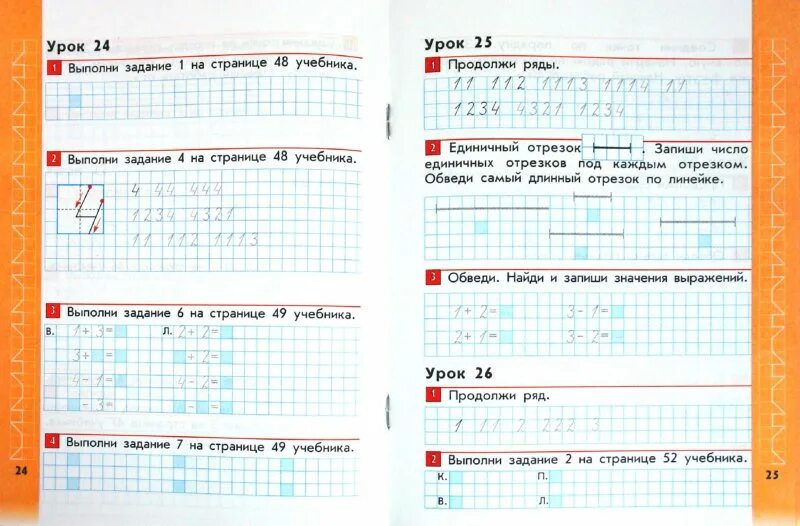 Урок 24
1 Выполни задание 1 на странице 48 учебника.
2 Выполни задание 4 на странице 48 учебника.
4 44 444
1234 4321
11 112 1113
3 Выполни задание 6 на странице 49 учебника.
в. 1+3= л. 2+2=
3+ = +2=
4-1= 4-2=
-3= - =
4 Выполни задание 7 на странице 49 учебника.
24
Урок 25
1 Продолжи ряды.
11 112 1113 1114 11
1234 4321 1234
2 Единичный отрезок . Запиши число
единичных отрезков под каждым отрезком.
Обведи самый длинный отрезок по линейке.
3 Обведи. Найди и запиши значения выражений.
1+2= 3-1=
2+1= 3-2=
Урок 26
1 Продолжи ряд.
1 11 2 222 3
2 Выполни задание 2 на странице 52 учебника.
к. п.
в. л.
25